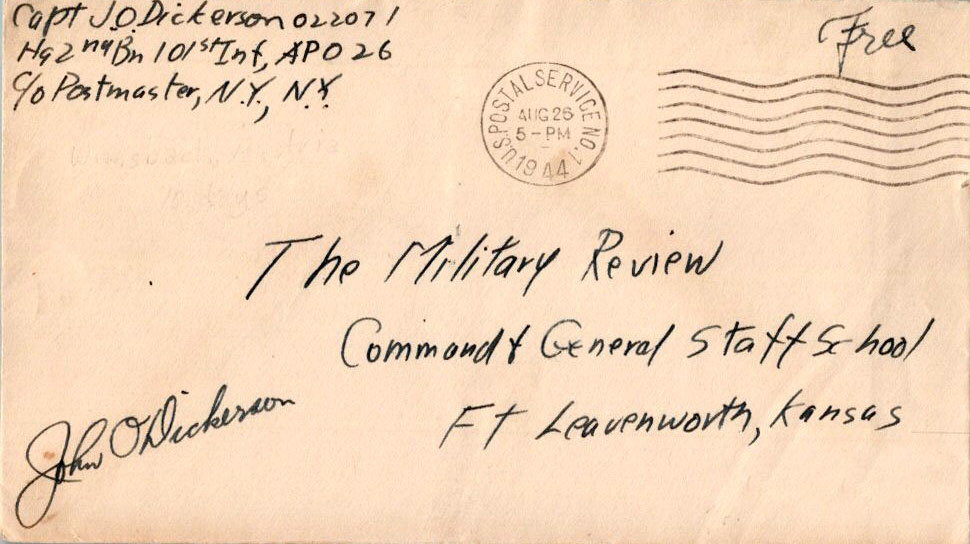 Capt J.O. Dickerson 022071
Hq 2nd Bn 101st Inf, APO 26
c/o Postmaster, N.Y., N.Y.
Free
U.S. POSTAL SERVICE NO. 1
AUG 26
5-PM
1944
The Military Review
Command & General Staff School
Ft Leavenworth, Kansas
John O Dickerson